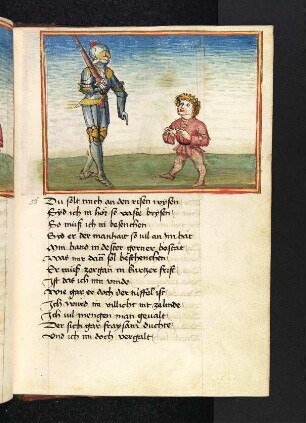 Du solt mich an den risen wysen
Syd ich in hör so vaste brysen
So müß ich in besenchen
Syd er der manhait so vil an im hat
Min hand in dester gerner bestat
Was mir dan sol beschenchen
Er müß sorgan in kurtzer frist
Ist das ich in vinde
Wie gar er doch der tüffel ist
Ich wird im villicht zü
Ich vil mengen man gevalt
Der sich gar fraysam duchte
Und ich im doch vergalt